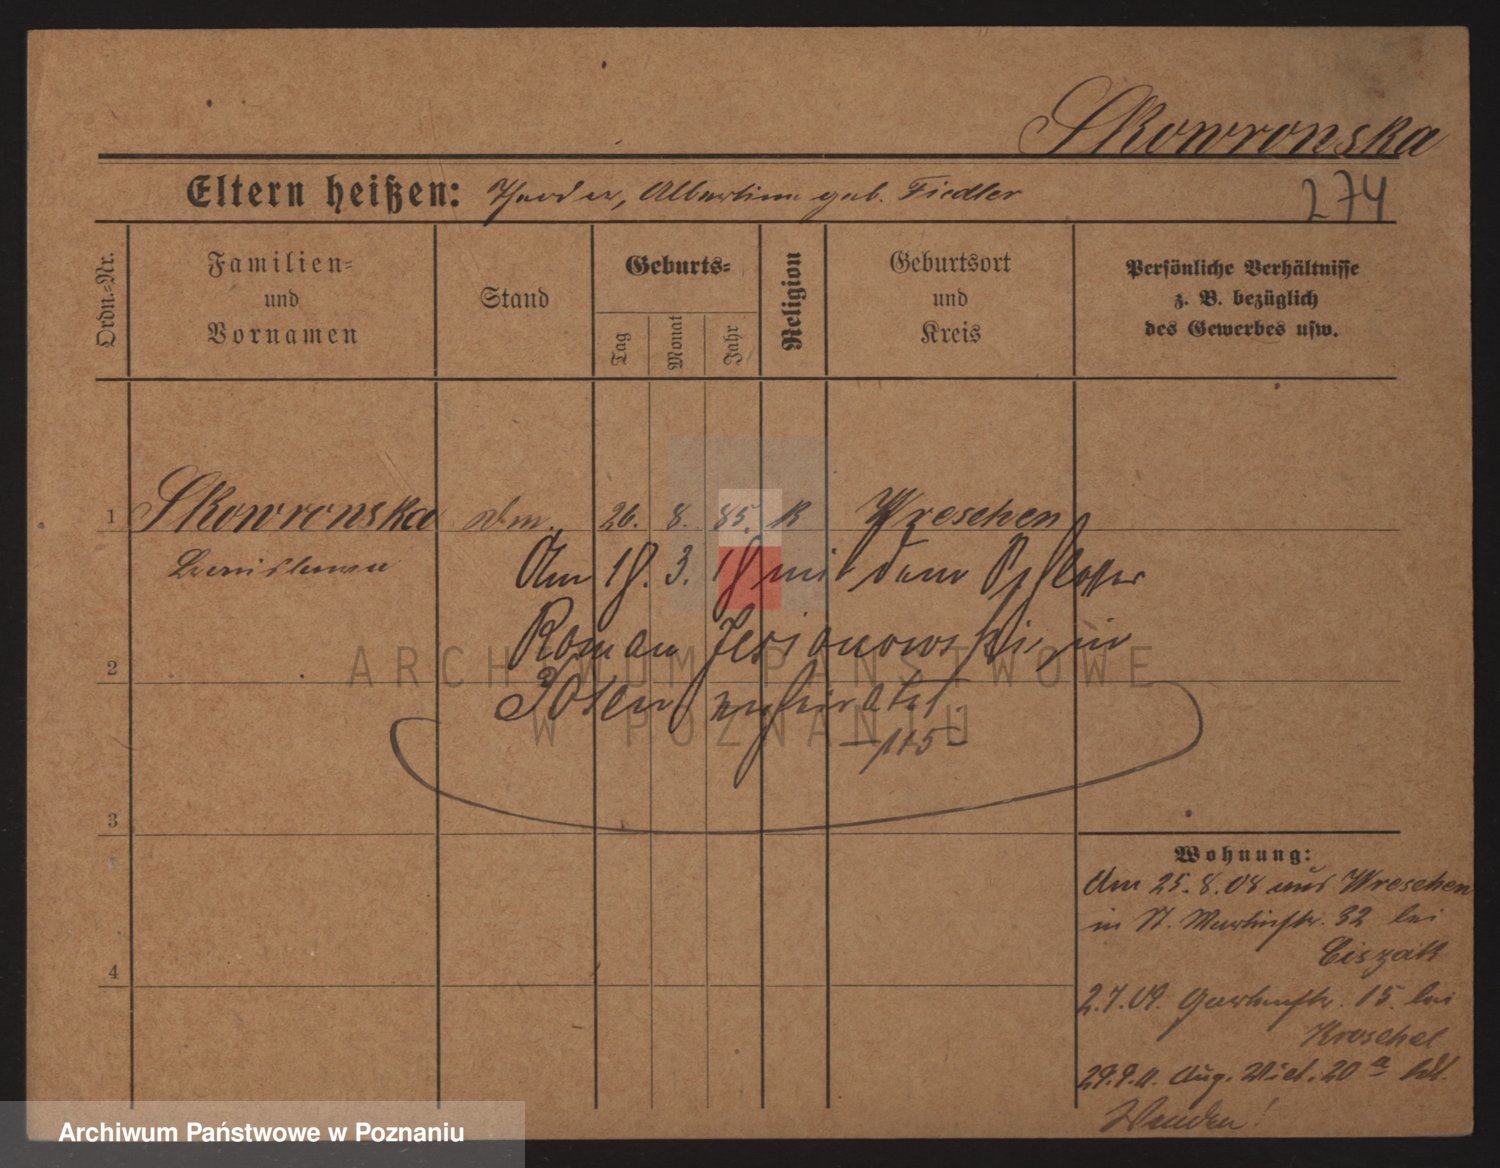 Skowronska
Eltern heißen: Theodor, Albertine geb. Fiedler
274
Ordn.-Nr.
Familien- und Vornamen
Stand
Geburts-
Tag
Monat
Jahr
Religion
Geburtsort und Kreis
Persönliche Verhältnisse z. B. bezüglich des Gewerbes usw.
1 Skowronska 26. 8. 85. K Wreschen
Am 18. 3. 18 mit dem Schlosser
2 Roman in
Posen verheiratet.
3
4
Wohnung:
Am 25.8.08 aus Wreschen
in St. Martinstr. 32 bei
Ciszak
2.7.09. Gartenstr. 15. bei
Kroschel
29.9.11. Aug. Vict. 20 a
Wenden!
ARCHIWUM PAŃSTWOWE
W POZNANIU
Archiwum Państwowe w Poznaniu